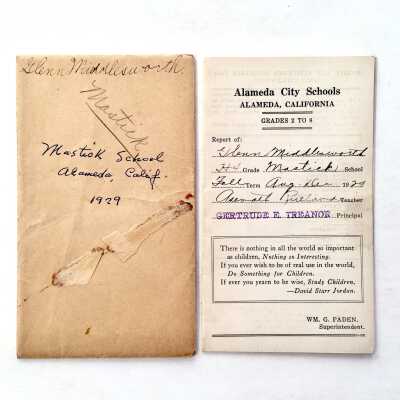 Glenn Middlesworth.
Mastick
Mastick School
Alameda, Calif.
1929
Alameda City Schools
ALAMEDA, CALIFORNIA
GRADES 2 TO 8
Report of:
Glenn Middlesworth
H4 Grade Mastick School
Fall Term Aug-Dec 1929
Teacher
GERTRUDE E. TREANOR Principal
There is nothing in all the world so important
as children, Nothing so Interesting.
If you ever wish to be of real use in the world,
Do Something for Children.
If ever you yearn to be wise, Study Children.
—David Starr Jordan.
WM. G. PADEN.
Superintendent.